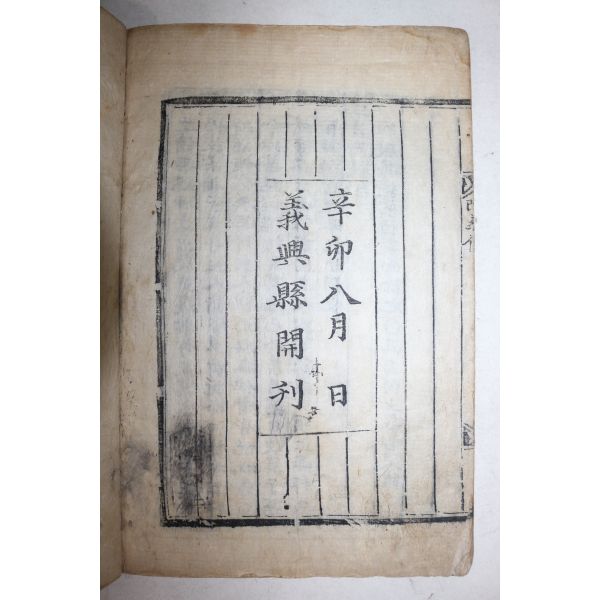 辛卯八月 日
義興縣開刊